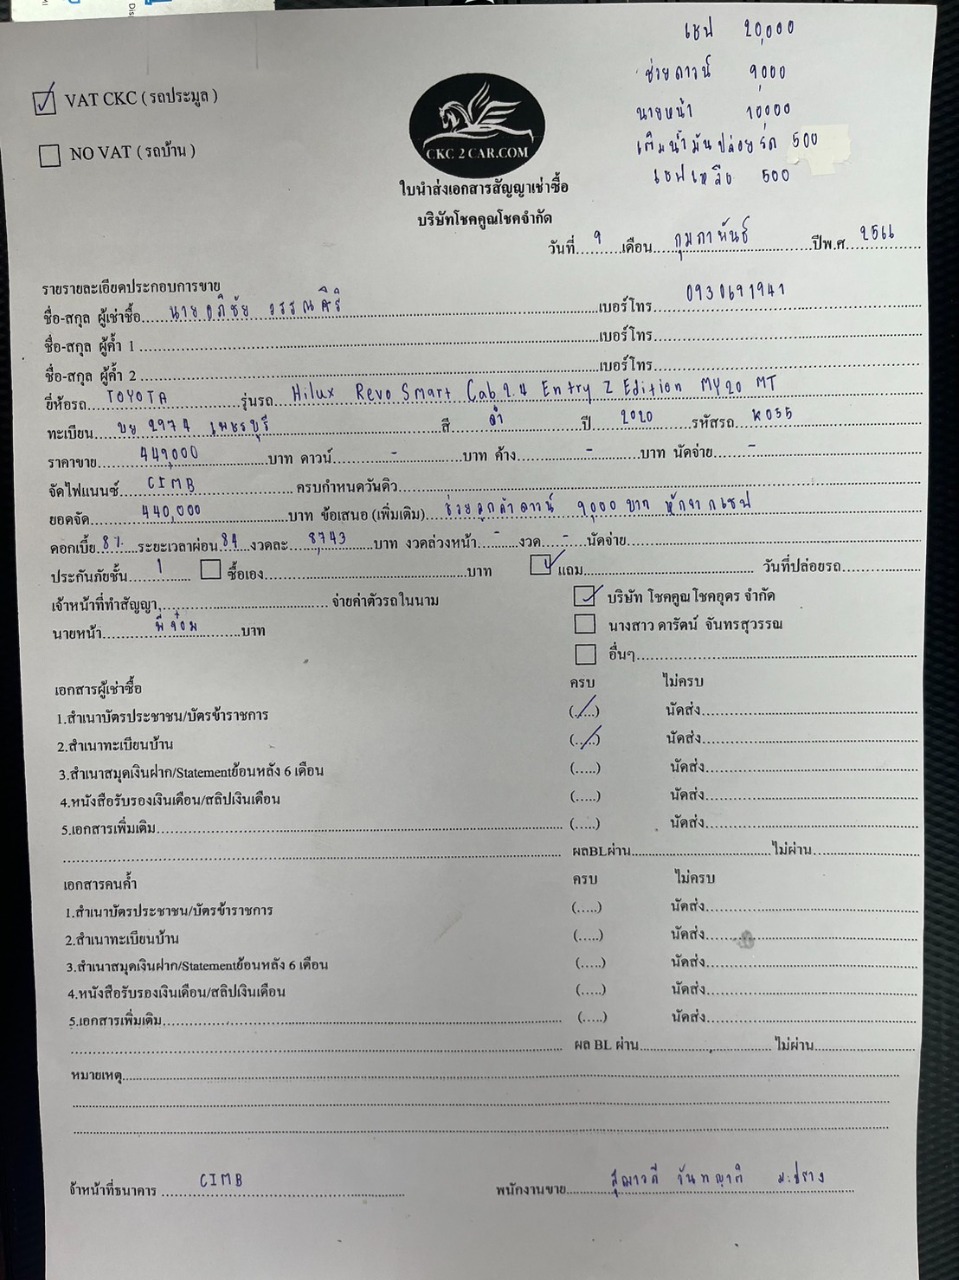 เซฟ 20,000
ช่วยดาวน์ 9,000
นายหน้า 10,000
เติมน้ำมันปล่อยรถ 500
เซฟเหลือ 500
VAT CKC ( รถประมูล )
NO VAT ( รถบ้าน )
CKC 2 CAR.COM
ใบนำส่งเอกสารสัญญาเช่าซื้อ
บริษัทโชคคูณโชคจำกัด
วันที่ 9 เดือน กุมภาพันธ์ ปีพ.ศ. 2566
รายรายละเอียดประกอบการขาย
ชื่อ-สกุล ผู้เช่าซื้อ นายอภิชัย วรรณศิริ เบอร์โทร 0930691941
ชื่อ-สกุล ผู้ค้ำ 1 เบอร์โทร
ชื่อ-สกุล ผู้ค้ำ 2 เบอร์โทร
ยี่ห้อรถ TOYOTA รุ่นรถ Hilux Revo Smart Cab 2.4 Entry Z Edition MY20 MT
ทะเบียน บย 2974 เพชรบุรี สี ดำ ปี 2020 รหัสรถ K055
ราคาขาย 449,000 บาท ดาวน์ - บาท ค้าง - บาท นัดจ่าย -
จัดไฟแนนซ์ CIMB ครบกำหนดวันดิว
ยอดจัด 440,000 บาท ข้อเสนอ (เพิ่มเติม) ช่วยลูกค้าดาวน์ 9,000 บาท หักจากเซฟ
ดอกเบี้ย 8% ระยะเวลาผ่อน 84 งวดละ 8,743 บาท งวดล่วงหน้า - งวด - นัดจ่าย
ประกันภัยชั้น 1 ซื้อเอง บาท แถม วันที่ปล่อยรถ
เจ้าหน้าที่ทำสัญญา จ่ายค่าตัวรถในนาม บริษัท โชคคูณโชคอุดร จำกัด
นายหน้า พี่จ๋อม บาท นางสาว ดารัตน์ จันทรสุวรรณ
อื่นๆ
เอกสารผู้เช่าซื้อ ครบ ไม่ครบ
1.สำเนาบัตรประชาชน/บัตรข้าราชการ (./.) นัดส่ง
2.สำเนาทะเบียนบ้าน (./.) นัดส่ง
3.สำเนาสมุดเงินฝาก/Statementย้อนหลัง 6 เดือน (.....) นัดส่ง
4.หนังสือรับรองเงินเดือน/สลิปเงินเดือน (.....) นัดส่ง
5.เอกสารเพิ่มเติม (.....) นัดส่ง
ผลBLผ่าน ไม่ผ่าน
เอกสารคนค้ำ ครบ ไม่ครบ
1.สำเนาบัตรประชาชน/บัตรข้าราชการ (.....) นัดส่ง
2.สำเนาทะเบียนบ้าน (.....) นัดส่ง
3.สำเนาสมุดเงินฝาก/Statementย้อนหลัง 6 เดือน (.....) นัดส่ง
4.หนังสือรับรองเงินเดือน/สลิปเงินเดือน (.....) นัดส่ง
5.เอกสารเพิ่มเติม (.....) นัดส่ง
ผล BL ผ่าน ไม่ผ่าน
หมายเหตุ
จ้าหน้าที่ธนาคาร CIMB พนักงานขาย สุฌาวดี มะปราง